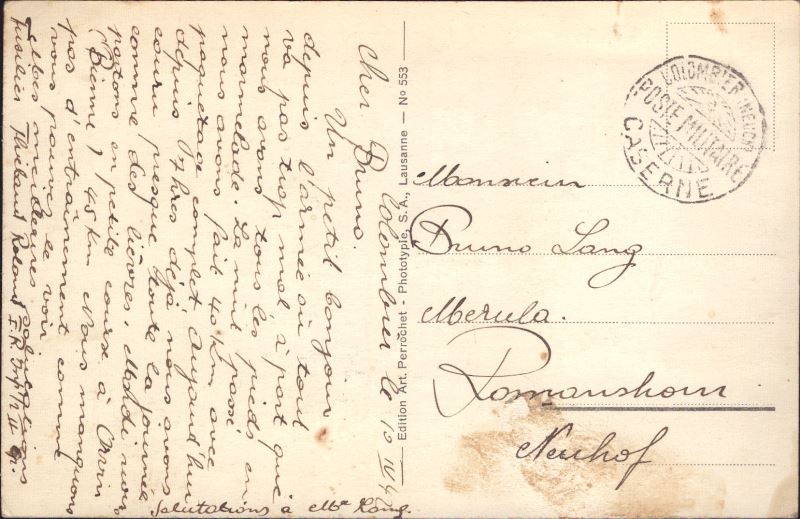 Colombier le 10 IV 4
Cher Bruno.
Un petit bonjour
depuis l'armée où tout
va pas trop mal à part que
nous avons tous les pieds en
marmelade. La nuit passé
nous avons fait 40 km avec
paquetage complet. Aujourd'hui
depuis 07 hres déjà nous avons
couru presque toute la journée
comme des lièvres. Mardi nous
partons en petite course à Orvin
(Bienne) 45 km. Nous manquons
pas d'entraînement comme
vous pouvez le voir.
Mes meilleures salutations
Fusilier Thiébaud Roland E.R.
Salutations à Me Lang.
Edition Art. Perrochet - Phototypie, S. A., Lausanne — No 553
COLOMBIER
POSTE MILITAIRE
CASERNE
Monsieur
Bruno Lang
Merula.
Romanshorn
Neuhof